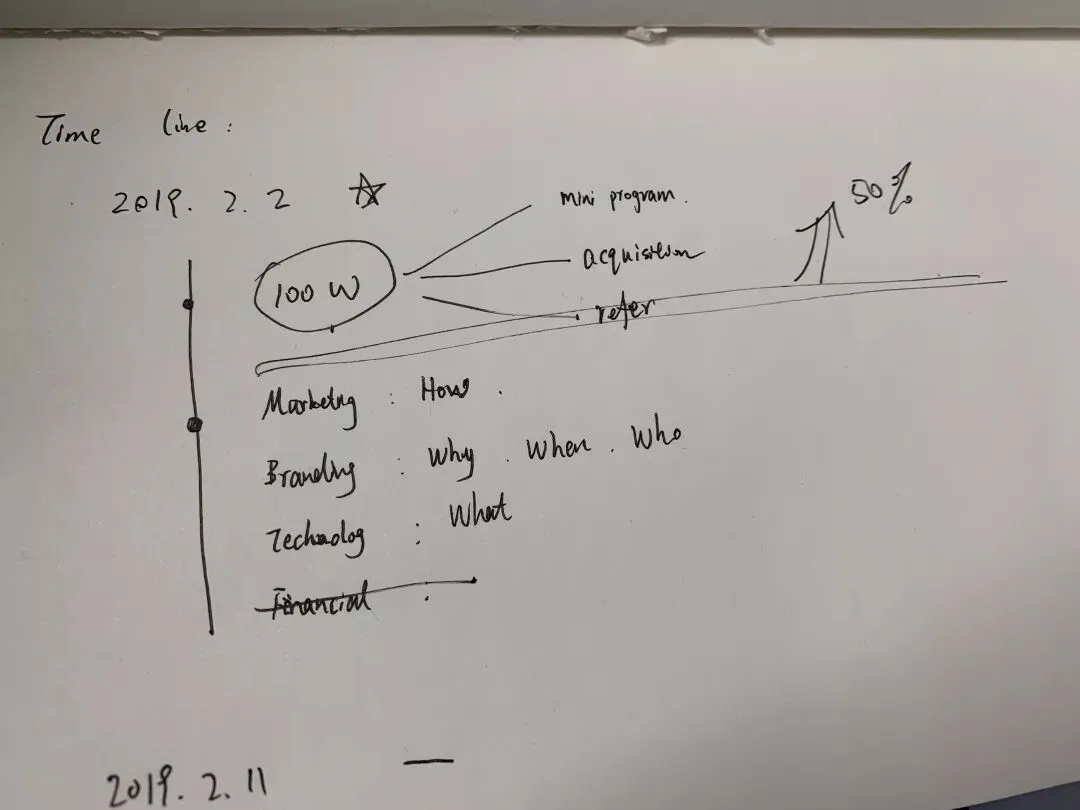 Time Line :
2019. 2. 2
mini program.
50%
acquisition
100 W
refer
Marketng : How .
Branding : Why . When . Who
Technolog : What
Financial :
2019. 2. 11 —